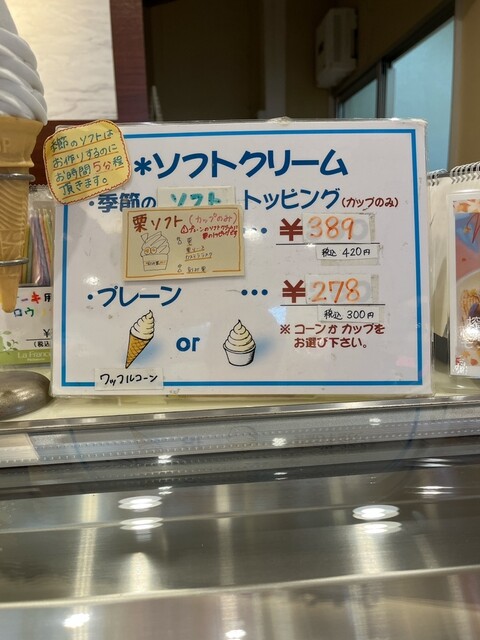 季節のソフトは
お作りするのに
お時間5分程
頂きます。
*ソフトクリーム
・季節の ソフト トッピング(カップのみ)
栗ソフト (カップのみ)
… ¥389
税込 420円
・プレーン … ¥278
税込 300円
※コーンかカップを
お選び下さい。
or
ワッフルコーン
ーキ用
ロウ
¥
(税込
La France